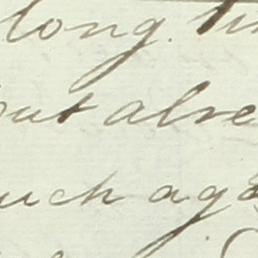 long
but alre
uch aga